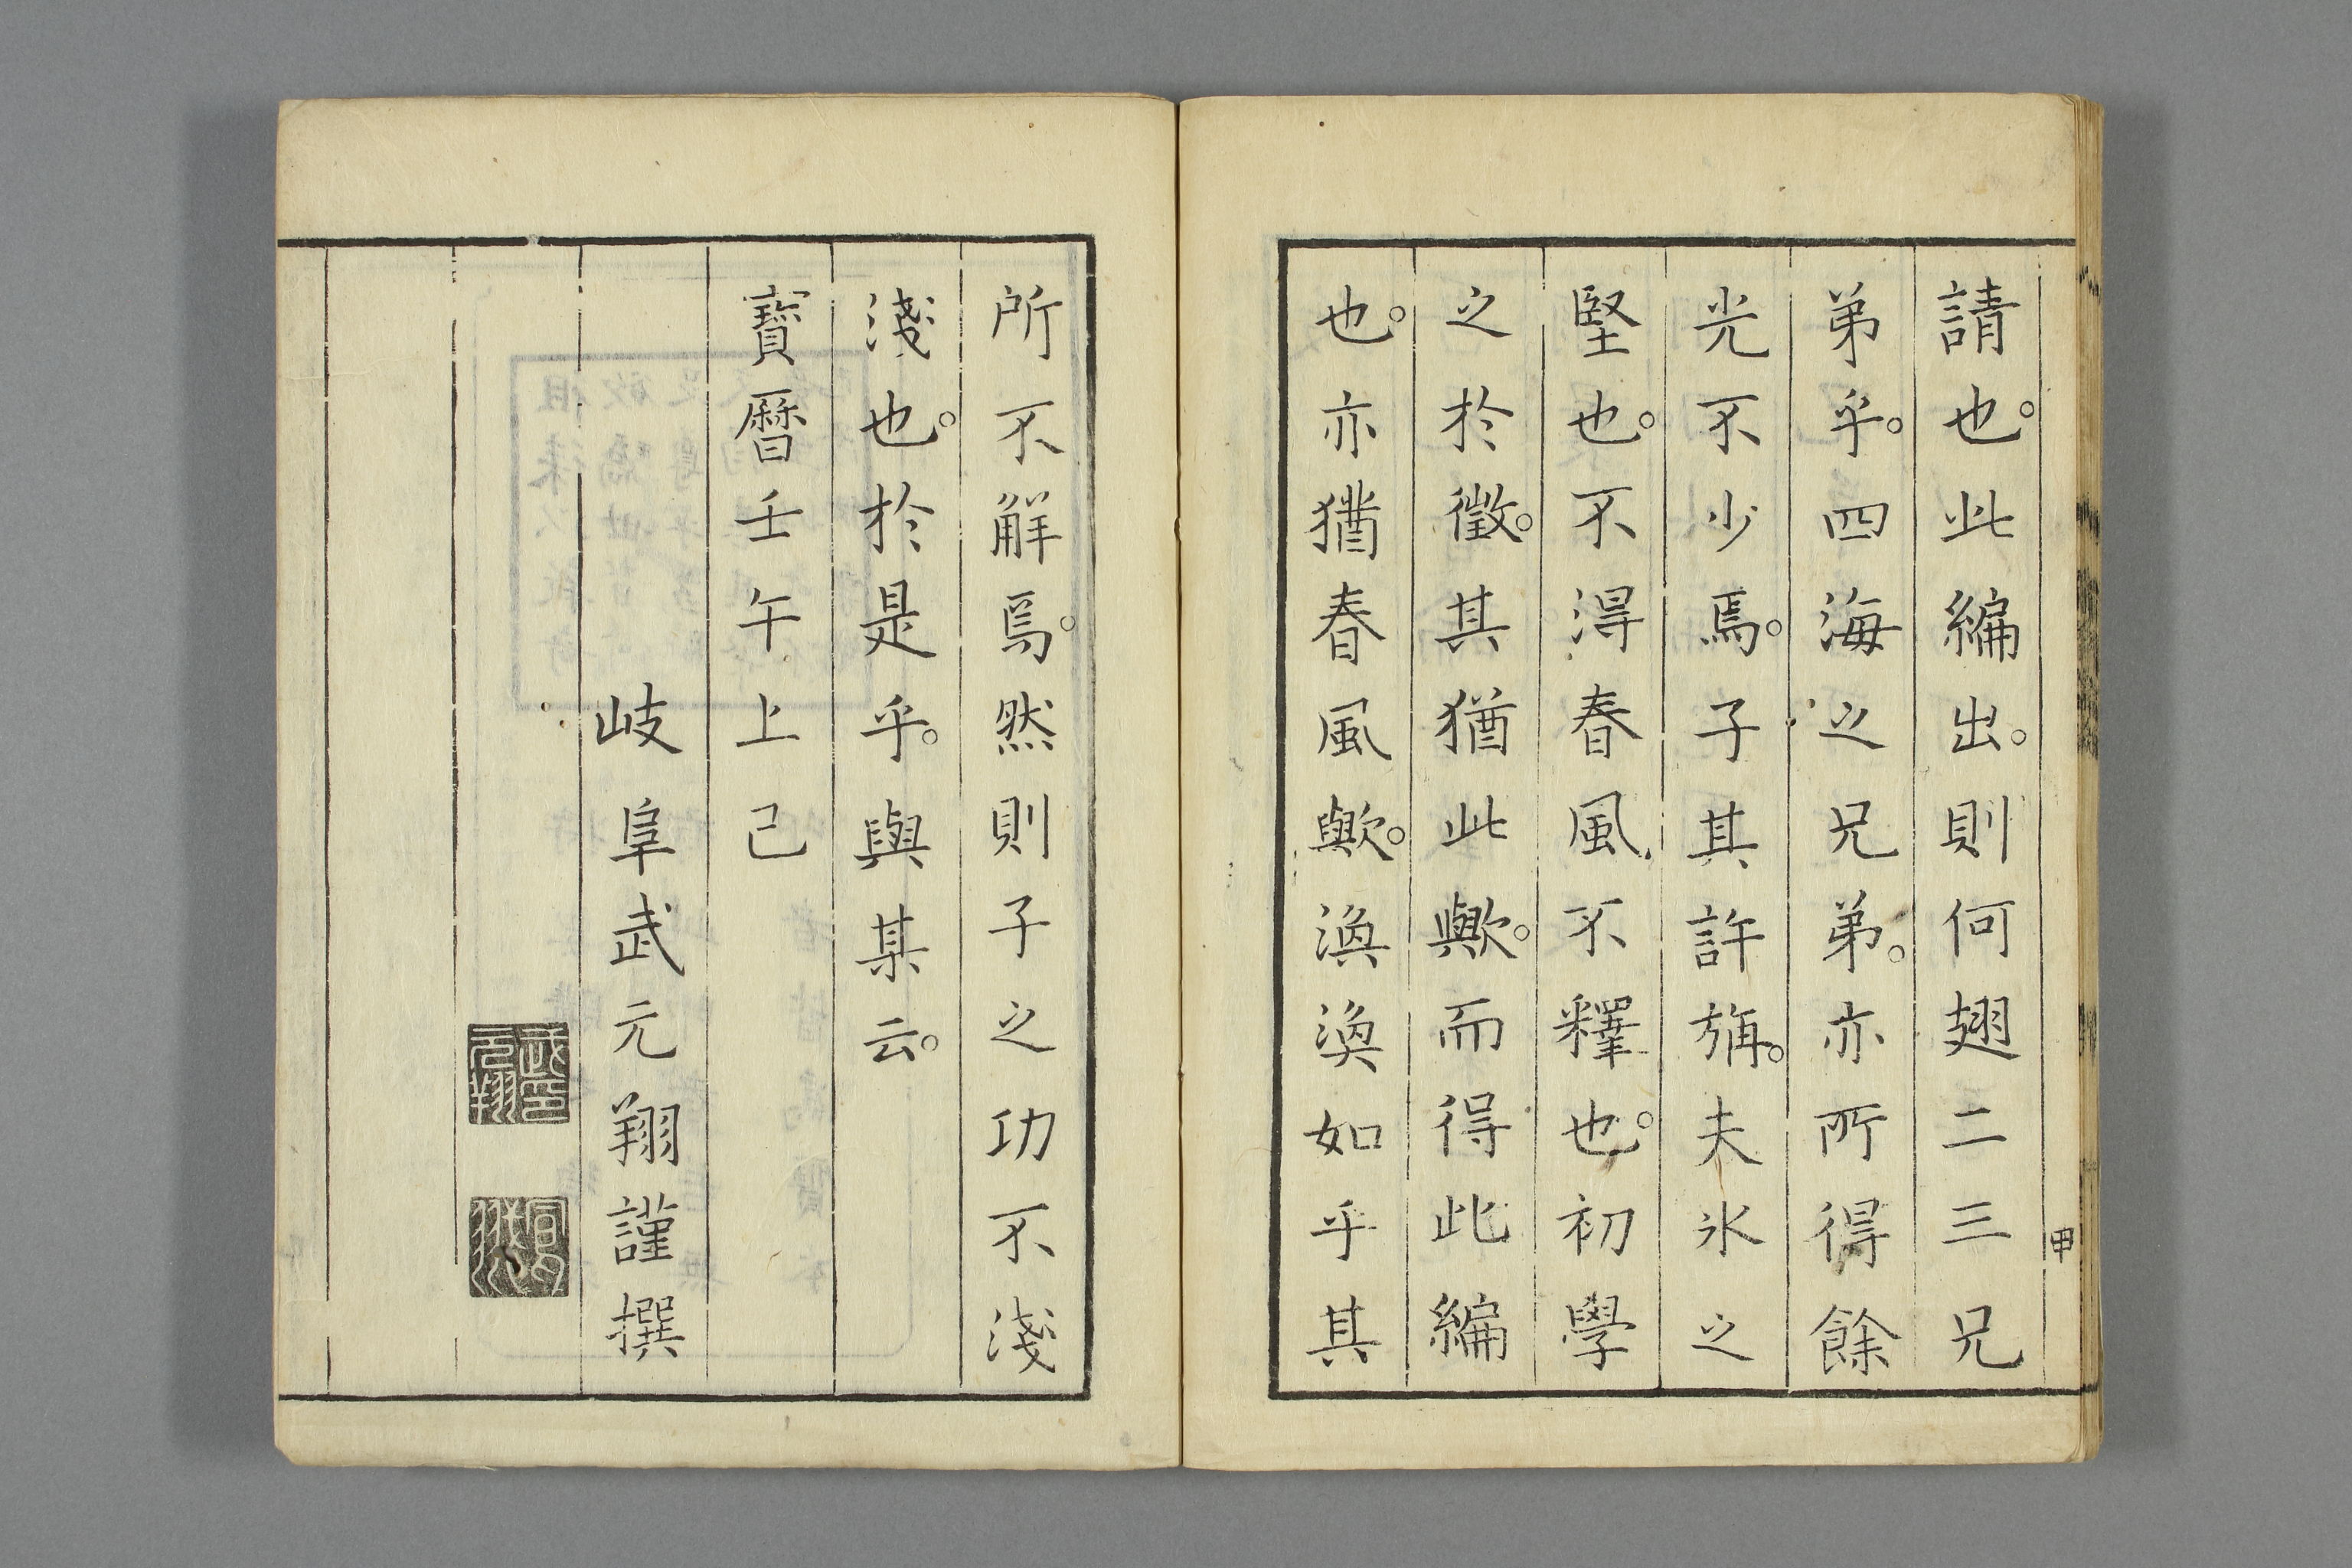 請也。此編出。則何翅二三兄
弟乎。四海之兄弟。亦所得餘
光不少焉。子其許旃。夫氷之
堅也。不得春風不釋也。初學
之於徵。其猶此歟。而得此編
也。亦猶春風歟。渙渙如乎其
甲
所不解焉。然則子之功不淺
淺也。於是乎。與其云。
寶曆壬午上巳
岐阜武元翔謹撰
武元翔印